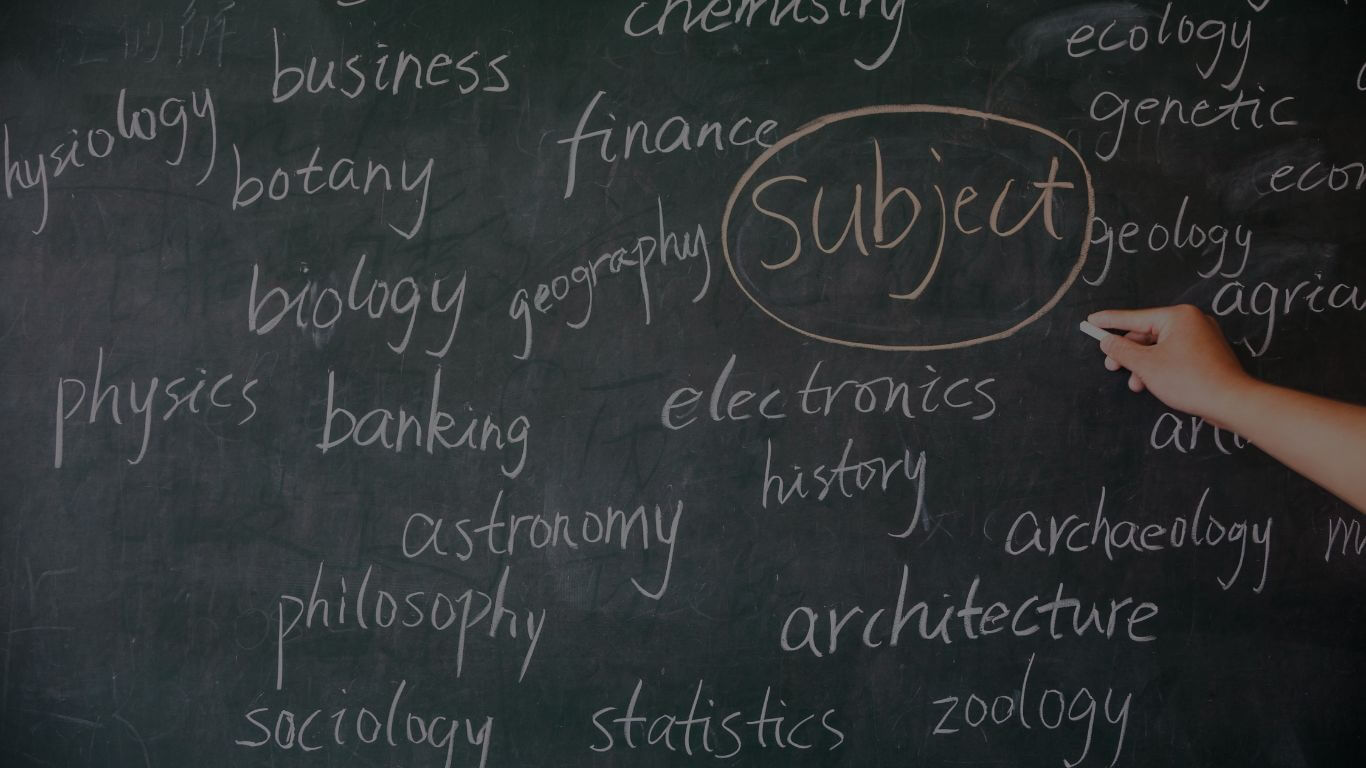 chemistry
ecology
business
genetic
hysiology
finance
botany
subject
geography
geology
biology
physics
banking
electronics
history
astronomy
archaeology
philosophy
architecture
sociology
statistics
zoology